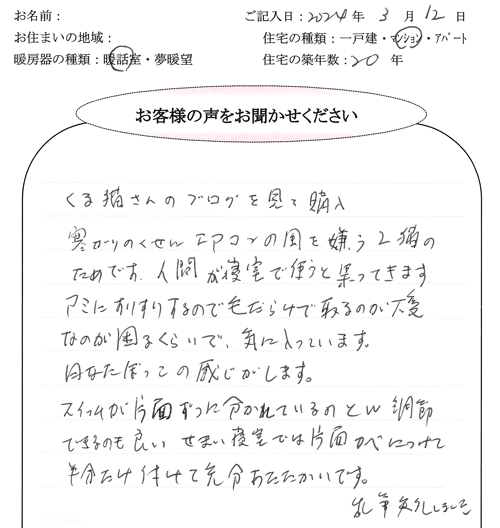 お名前： ご記入日：2024年 3月12日
お住まいの地域： 住宅の種類：一戸建・マンション・アパート
暖房器の種類：暖話室・夢暖望 住宅の築年数：20年
お客様の声をお聞かせください
くる猫さんのブログを見て購入
寒がりのくせにエアコンの風を嫌う2猫の
ためです。人間が寝室で使うと集ってきます
アミにすりすりするので毛だらけで取るのが大変
なのが困るくらいで、気に入っています。
日なたぼっこの感じがします。
スイッチが片面ずつに分かれているのとW調節
できるのも良い せまい寝室では片面カベにつけて
半分だけ付けて充分あたたかいです。
乱筆失礼しました